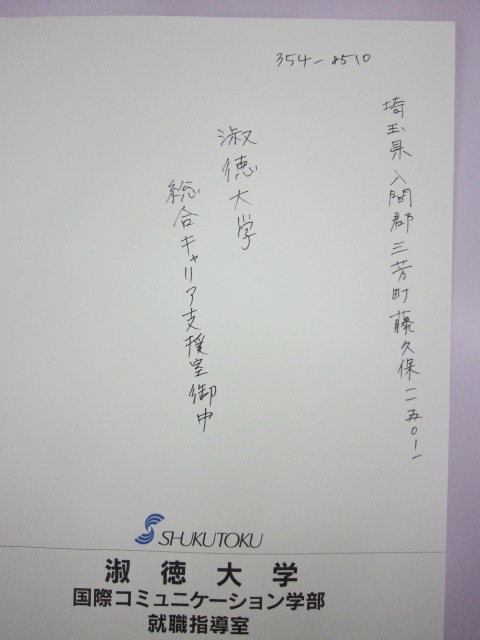 354-8510
埼玉県入間郡三芳町藤久保一一五〇ー一
淑徳大学
総合キャリア支援室御中
SHUKUTOKU
淑徳大学
国際コミュニケーション学部
就職指導室